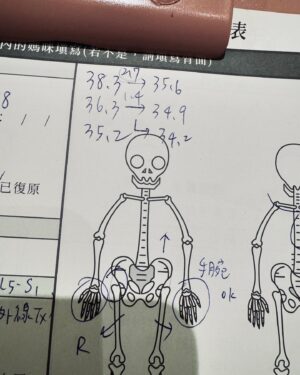 表
內的媽咪填寫(若不是，請填寫背面)
38.3 2.7→ 35.6
36.3 1.4→ 34.9
35.2 1→ 34.2
8
/ /
已復原
手腕
ok
L5-S1
外線Tx
R